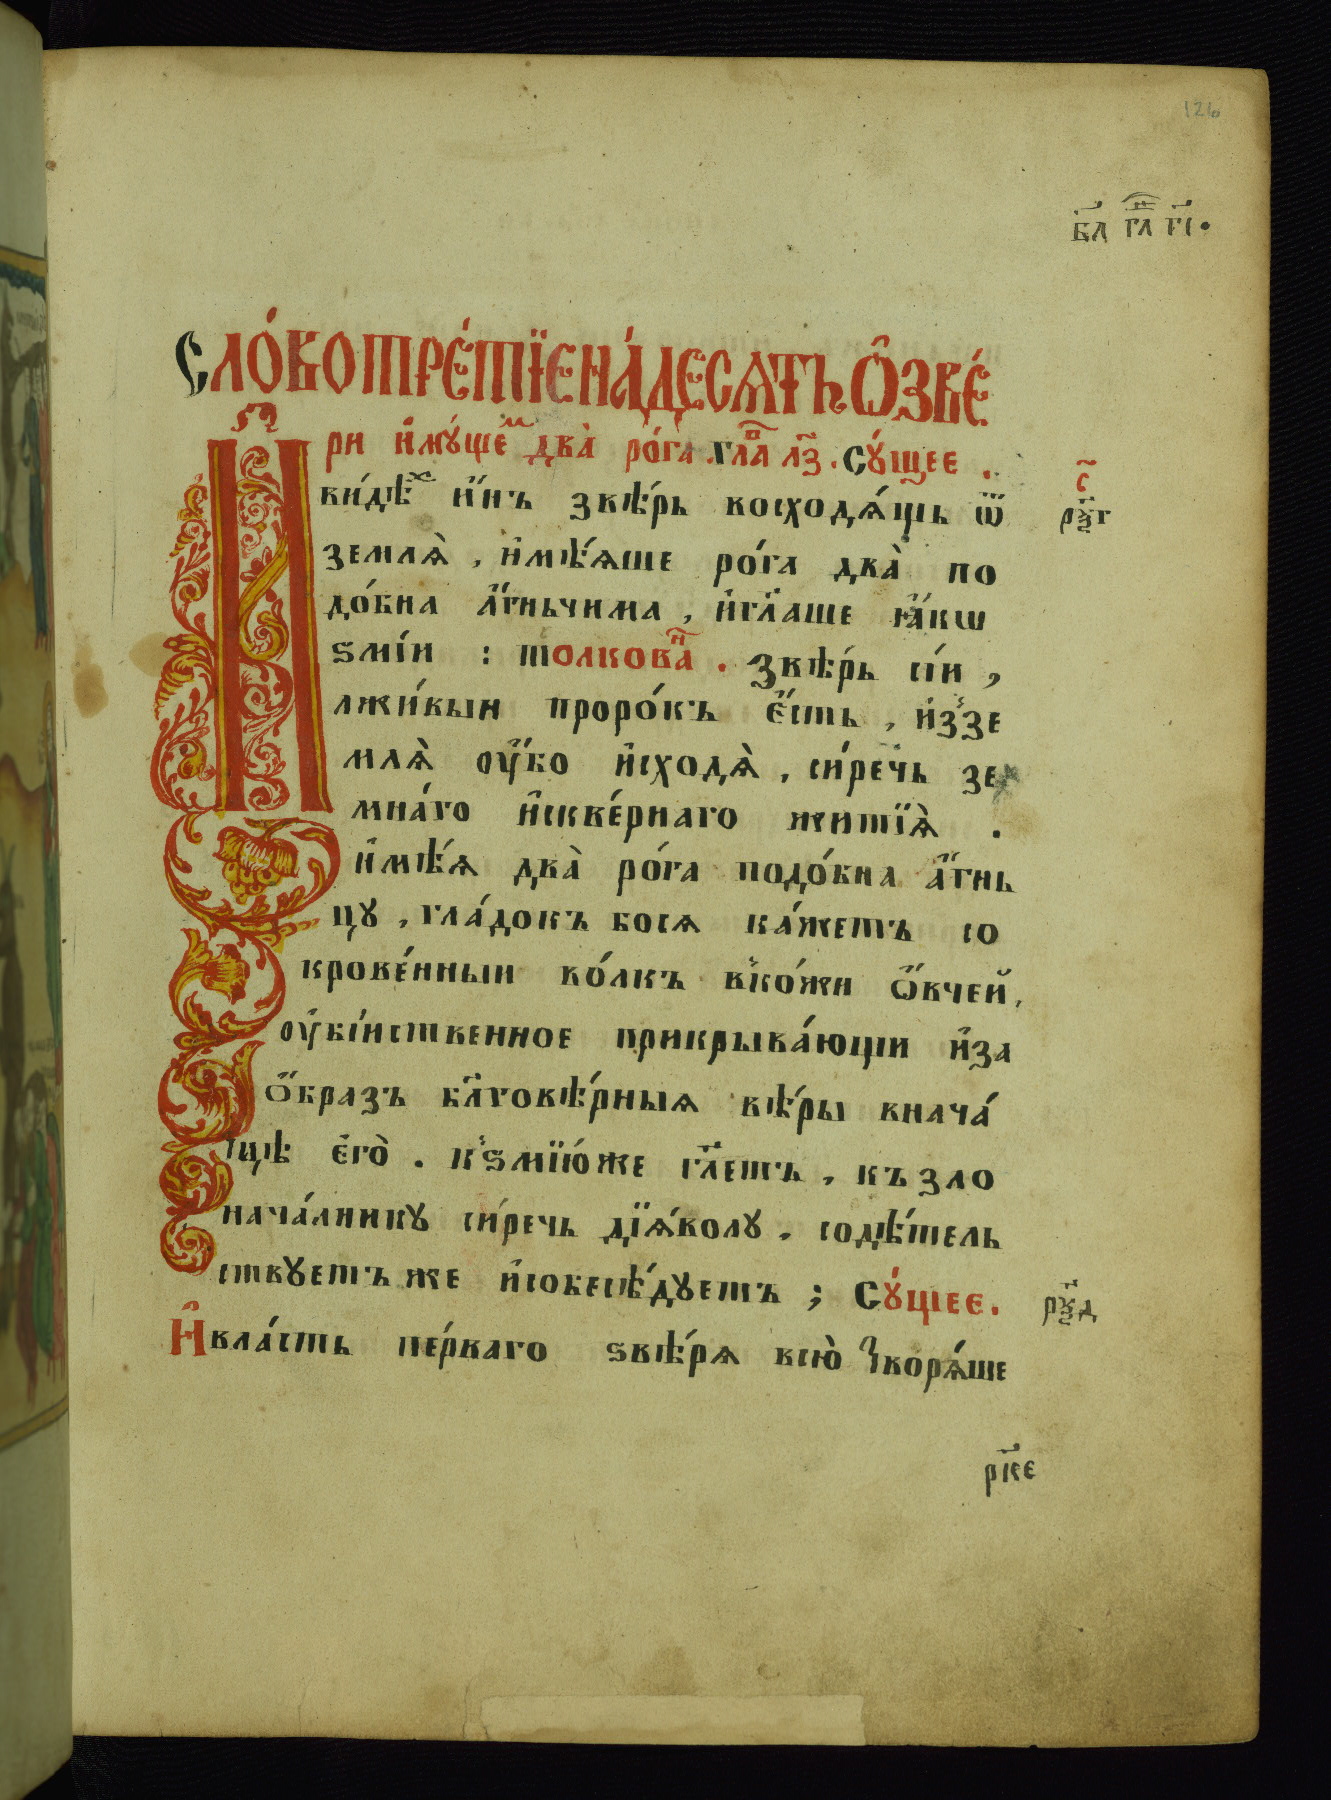 126
в҃л гл҃а г҃і.
Сло́вотре́тїенадеся́тьѡ҆зве́
ри и҆му́щеⷨ два̀ ро́га. глⷡ҇а л҃з. Су́щее.
ви́дѣⷯ и҆́нъ звѣ́рь восходѧ́щь ѿ
р҃ѯг
землѧ̀, и҆мѣ́ѧше ро́га два̀ по
до́бна а҆́гньчима, и҆гл҃аше ꙗ҆́кѡ
ѕмі́и : толкова́ⷩ҇. звѣ́рь сі́и,
лжи́выи проро́къ є҆́сть, и҆ззе
млѧ̀ ᲂу҆́бо и҆сходѧ̀, си́речь зе
мна́го и҆скве́рнаго житїѧ̀.
и҆мѣ́ѧ два̀ ро́га подо́бна а҆́гнь
цу, гла́докъ босѧ ка́жетъ со
крове́нныи во́лкъ вко́жи ѻ҆́вчей,
ᲂу҆бі́иственное прикрыва́ющи и҆за
ѻ҆́бразъ бл҃говѣ́рныѧ вѣ́ры внача́
цѣ є҆го̀. кѕмїю́же гл҃етъ, къзло
нача́лнику си́речь дїѧ́волу, содѣ́тель
ствуетъже и҆собесѣ́дуетъ ; Су́щее.
р҃ѯд
И҆вла́сть пе́рваго ѕвѣ́рѧ всю̀ творѧ́ше
р҃ке